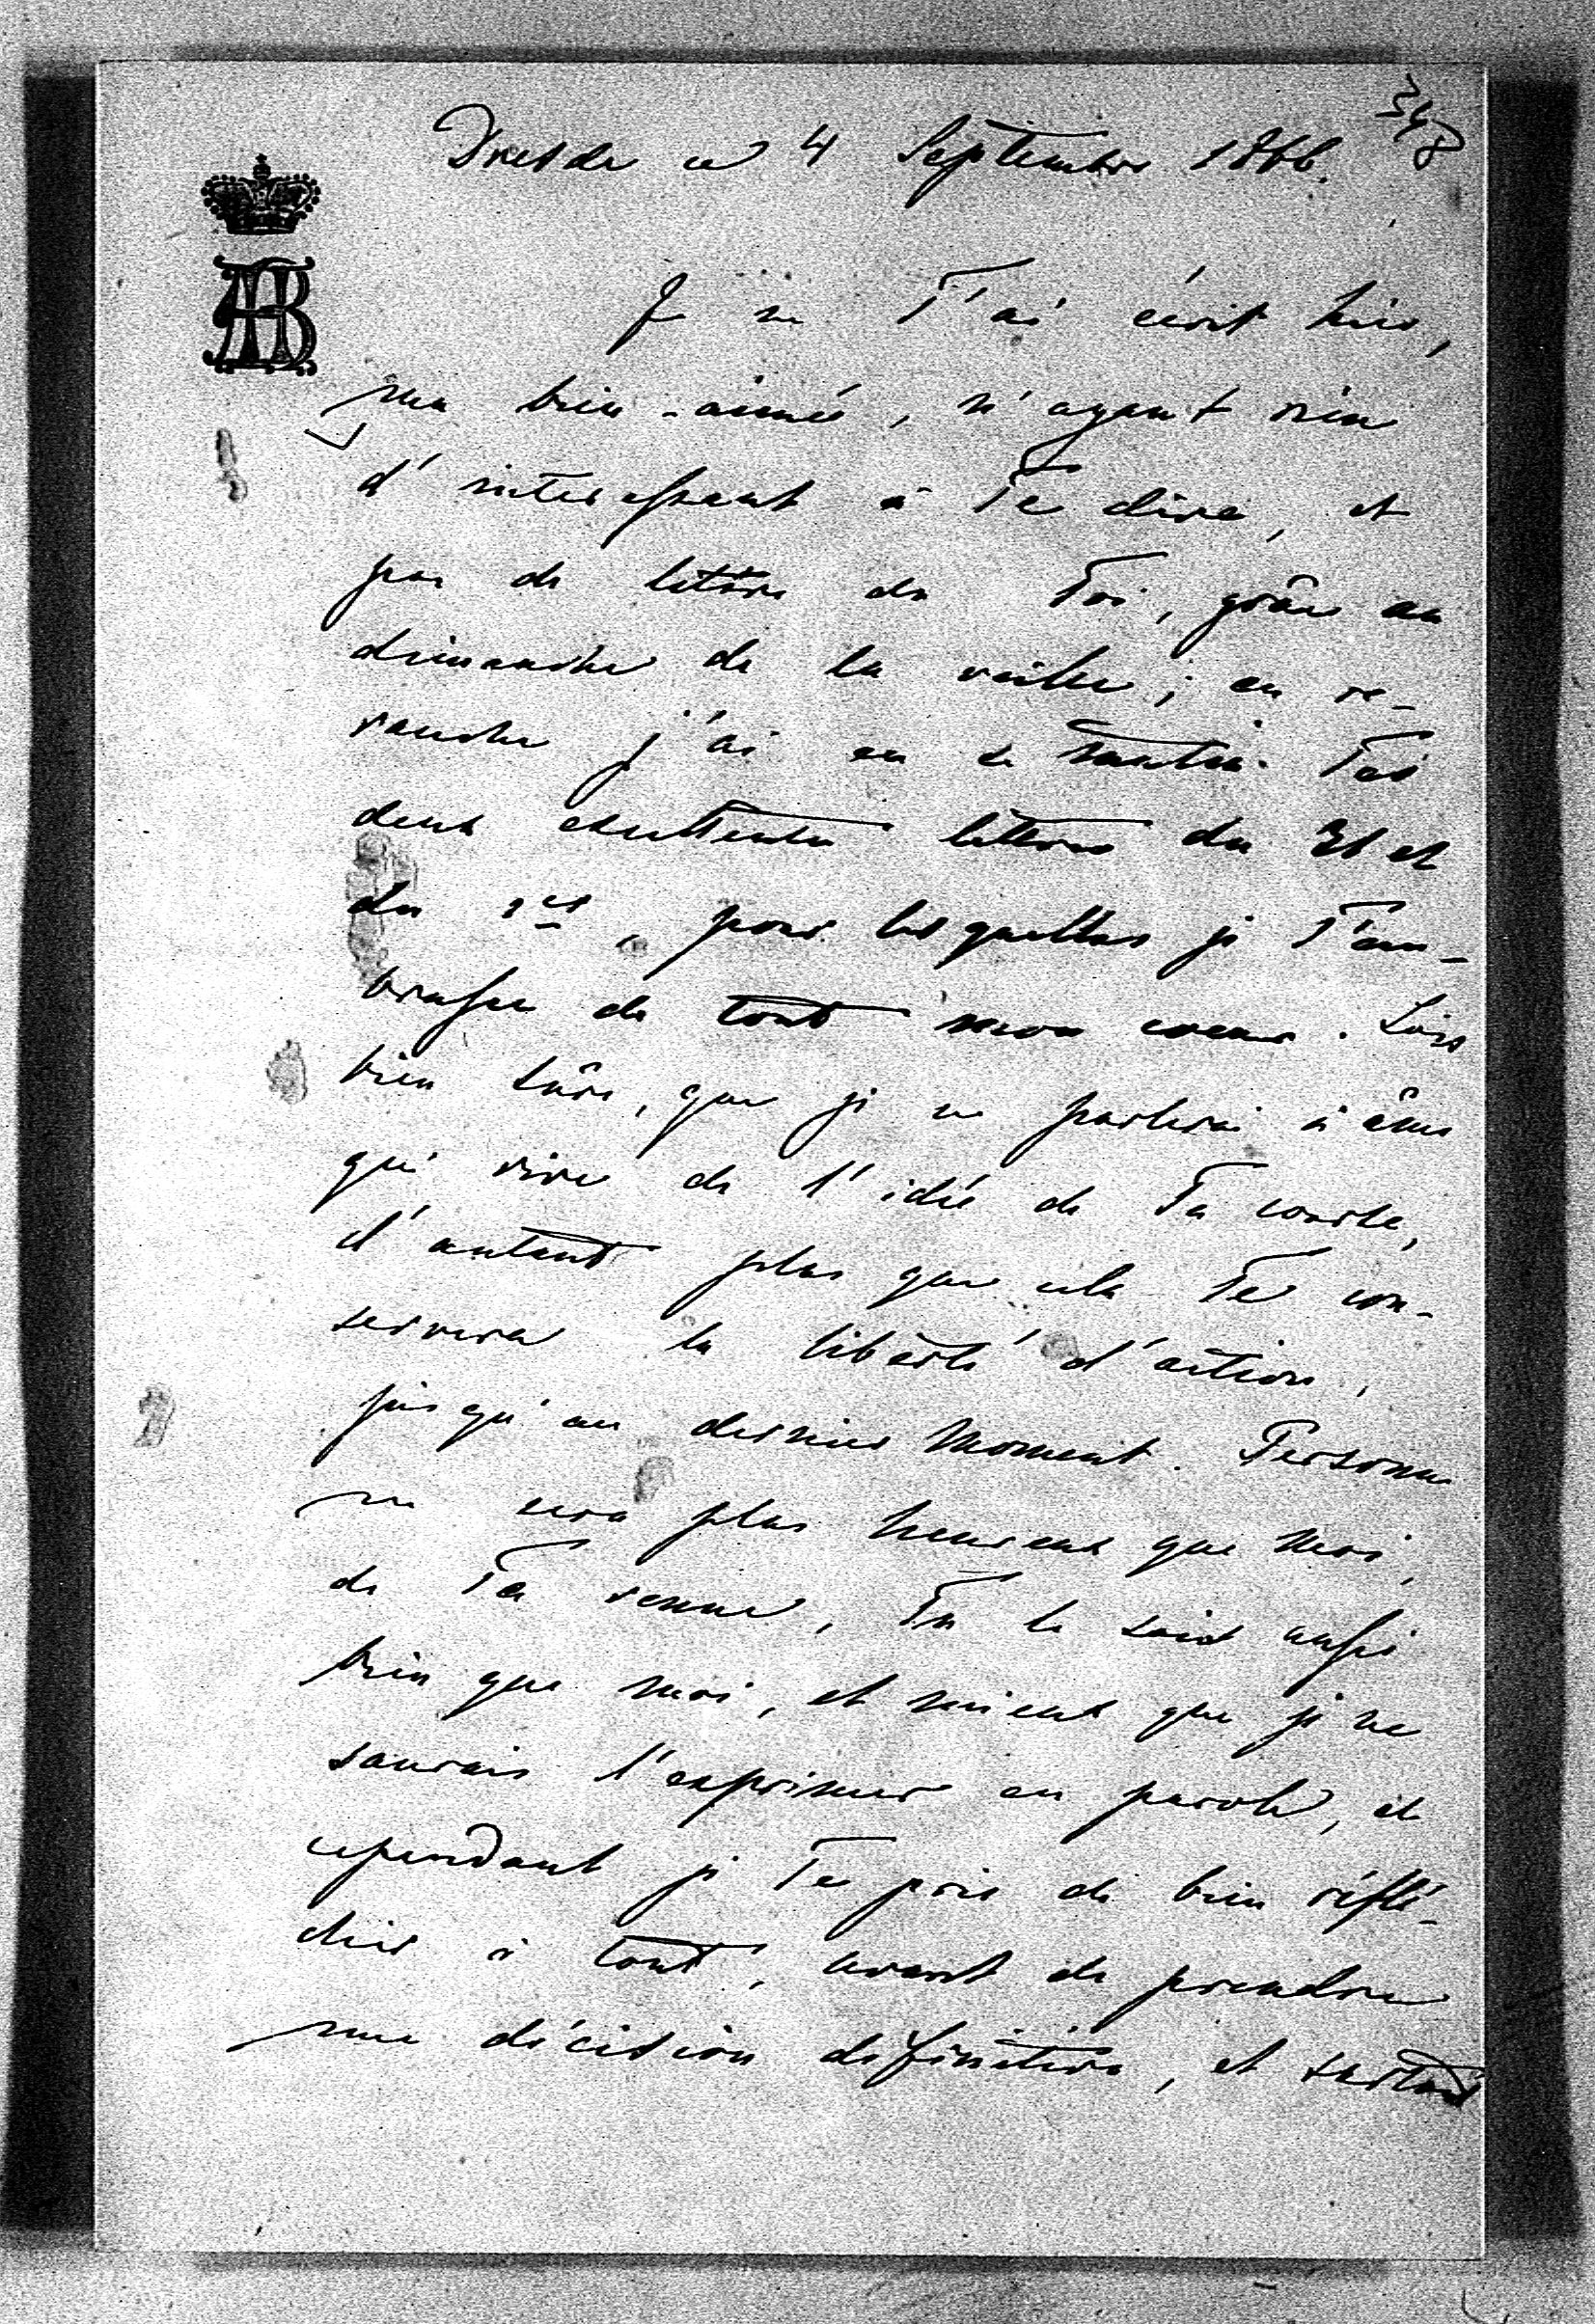 348
Dresde ce 4 Septembre 1866.
AB
Je ne T'ai écrit hier,
ma bien-aimée, n'ayant rien
d'interessant à Te dire, et
pas de lettre de Toi, grâce au
dimanche de la veille; en re-
vanche j'ai eu ce matin Tes
deux excellentes lettres du 31 et
du 1er, pour lesquelles je T'em-
brasse de tout mon coeur. Sois
bien sûre, que je ne parlerai à âme
qui vive de l'idée de Ta course,
d'autant plus que cela Te con-
servera la liberté d'action,
jusqu'au dernier moment. Personne
ne sera plus heureux que moi,
de Ta venue, Tu le sais aussi
bien que moi, et mieux que je ne
saurais l'exprimer en parole, et
cependant je Te prie de bien réflé-
chir à tout, avant de prendre
une décision definitive, et surtout